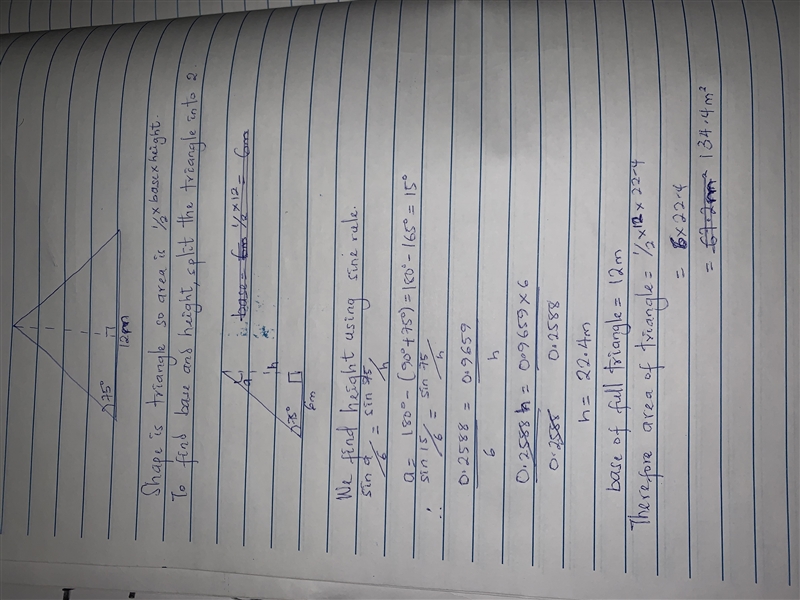 75°
12m
Shape is triangle so area is 1/2 x base x height.
To find base and height, split the triangle into 2.
a
h
75°
6m
base = 6m 1/2 x 12 = 6m
We find height using sine rule.
sin a/6 = sin 75/h
a = 180° - (90° + 75°) = 180° - 165° = 15°
∴ sin 15/6 = sin 75/h
0.2588/6 = 0.9659/h
0.2588 h/0.2588 = 0.9659 x 6/0.2588
h = 22.4m
base of full triangle = 12m
Therefore area of triangle = 1/2 x 12 x 22.4
= 6 x 22.4
= 67.2m² 134.4m²